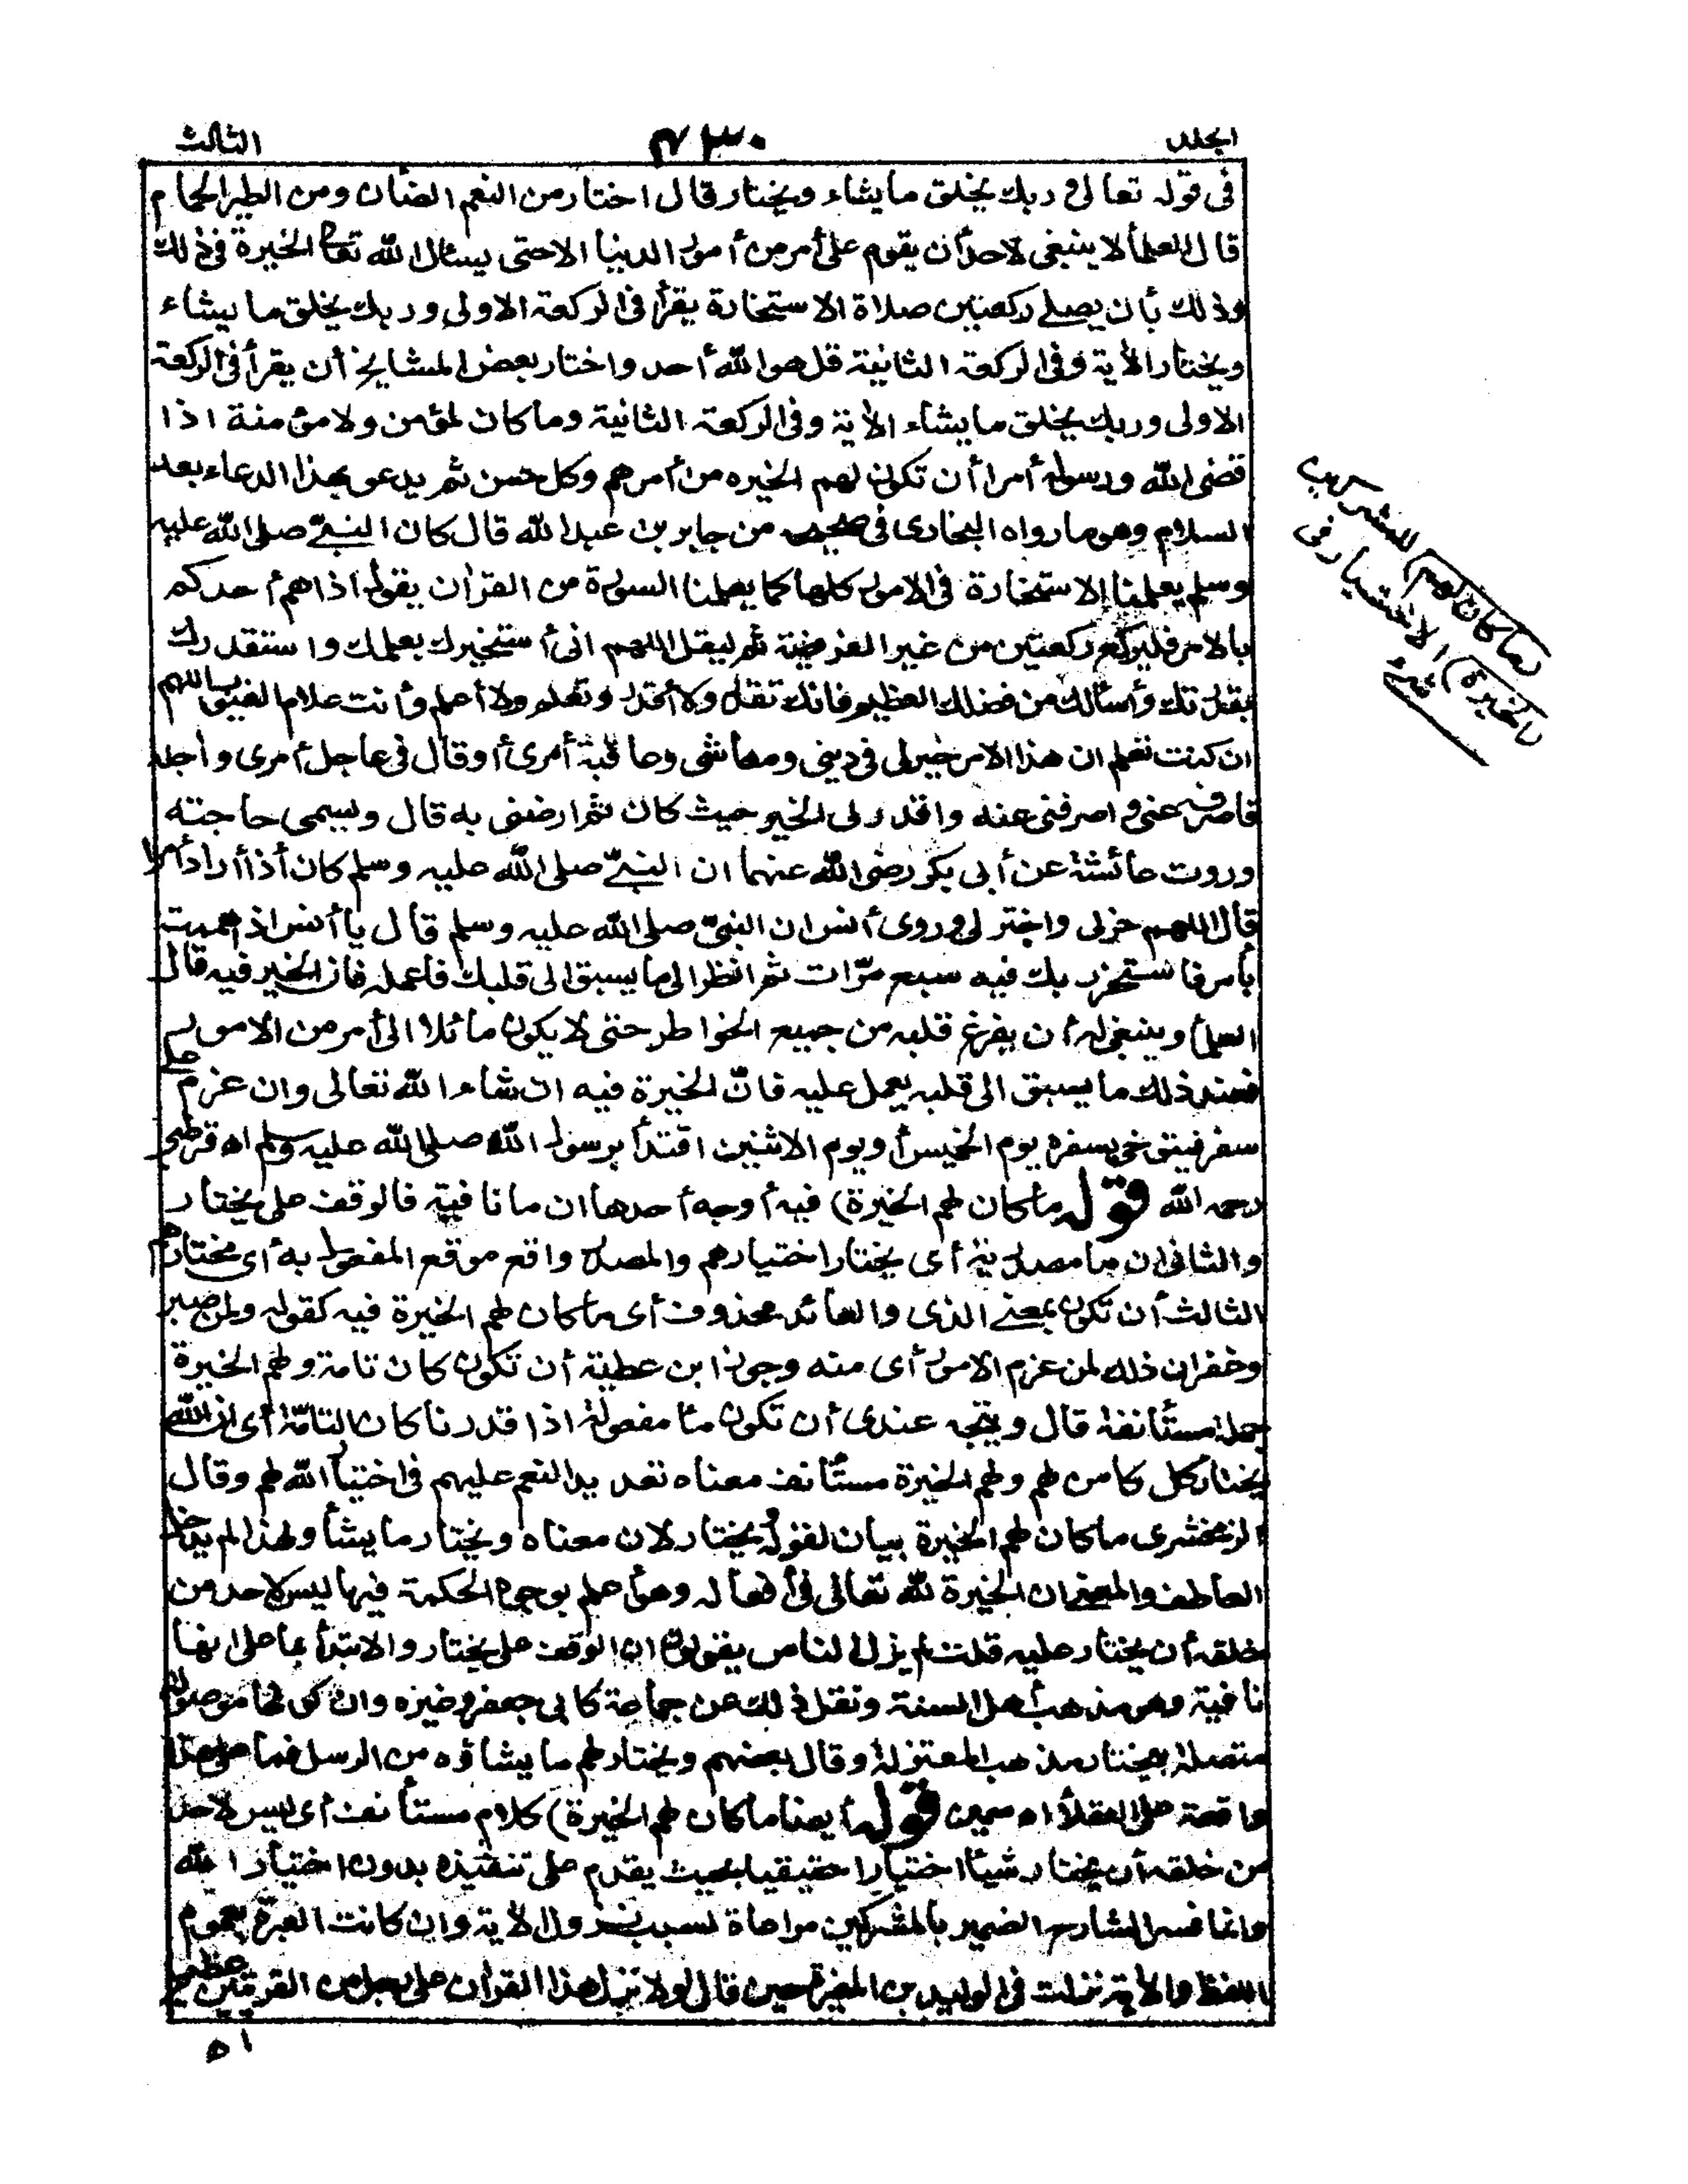 الجلد ٤٣٠ الثالث
فى قوله تعالى وربك يخلق مايشاء ويختار قال اختار من النعم الضأن ومن الطير الحمام
قال العلمأ لا ينبغى لاحد أن يقوم على أمر من أمور الدنيا الاحتى يسئال الله تعالى الخيرة فى ذلك
وذلك بأن يصلے ركعتين صلاة الاستخارة يقرأ فى الركعة الاولى وربك يخلق ما يشاء
ويختار الأية وفى الركعة الثانية قل هو الله أحد واختار بعض المشايخ أن يقرأ فى الركعة
الاولى وربك يخلق ما يشاء الأية وفى الركعة الثانية وما كان لمؤمن ولا مؤمنة اذا
قضى الله ورسوله أمرا أن تكون لهم الخيره من أمرهم وكل حسن ثم يدعو بهذا الدعاء بعد
السلام وهو ما رواه البخارى فى صحيحه من جابر بن عبد الله قال كان النبےّ صلى الله عليه
وسلم يعلمنا الاستخارة فى الامور كلها كما يعلمنا السورة من القرأن يقول اذا هم أحدكم
بالامر فليركع ركعتين من غير الفرضية ثم ليقل اللهم انى أستخيرك بعلمك واستقدرك
بقدرتك وأسألك من فضلك العظيم فانك تقدر ولا أقدر وتعلم ولا أعلم وأنت علام الغيوب اللهم
ان كنت تعلم ان هذا الامر خير لى فى دينى ومعاشى وعاقبة أمرى أو قال فى عاجل أمرى وأجله
فاصرفه عنى واصرفنى عنه واقدر لى الخير حيث كان ثم ارضنى به قال ويسمى حاجته
وروت عائشة عن أبى بكر رضى الله عنهما ان النبےّ صلى الله عليه وسلم كان أذا أراد أمرا
قال اللهم خرلى واختر لى وروى أنس ان النبىّ صلى الله عليه وسلم قال يا أنس اذا هممت
بأمر فاستخر ربك فيه سبع مرّات ثم انظر الى ما يسبق الى قلبك فاعمله فان الخير فيه قال
العلمأ وينبغى له أن يفرغ قلبه من جميع الخواطر حتى لا يكون مائلا الى أمر من الامور
فعند ذلك ما يسبق الى قلبه يعمل عليه فانّ الخيرة فيه ان شاء الله تعالى وان عزم على
سفر فيتوخى بسفره يوم الخميس أو يوم الاثنين اقتدأ برسول الله صلى الله عليه وسلم اه قرطبى
رحمه الله قوله ما كان لهم الخيرة) فيه أوجه أحدها ان ما نافية فالوقف على يختار
والثانى ان ما مصدرية أى يختار اختيارهم والمصدر واقع موقع المفعول به أى مختارهم
الثالث أن تكون بمعنے الذى والعائد محذوف أى ما كان لهم الخيرة فيه كقوله ولمن صبر
وغفر ان ذلك لمن عزم الامور أى منه وجوز ابن عطية أن تكون كان تامة ولهم الخيرة
جملة مستأنفة قال ويتجه عندى أن تكون ما مفعولة اذا قدرنا كان التامّة أى ان الله
يختار كل كائن لهم ولهم الخيرة مستأنف معناه تعديد النعم عليهم فى اختيار الله لهم وقال
الزمخشرى ما كان لهم الخيرة بيان لقوله ويختار لان معناه ويختار ما يشأ ولهذا لم يدخل
العاطف والمعنى ان الخيرة لله تعالى فى أفعاله وهو أعلم بوجوه الحكمة فيها ليس لاحد من
خلقه أن يختار عليه قلت لم يزل الناس يقولون ان الوقف على يختار والابتدأ بما على انها
نافية وهو مذهب أهل السنة ونقل ذلك عن جماعة كابى جعفر وغيره وان كونها موصولة
متصلة بيختار مذهب المعتزلة وقال بعضهم ويختار لهم ما يشاؤه من الرسل فما على هذا
واقعة على العقلأ اه سمين قوله أيضا ما كان لهم الخيرة) كلام مستأنف أى ليس لاحد
من خلقه أن يختار شيئا اختيارا حقيقيا بحيث يقدم على تنفيذه بدون اختيار الله
وانما فسر الشارح الضمير بالمشركين مراعاة لسبب نزول الأية وان كانت العبرة بعموم
اللفظ والأية نزلت فى الوليد بن المغيرة حين قال لولا نزل هذا القرأن على رجل من القريتين عظيم
اه
(ما كان لهم) للمشركين
(الخيرة) الاختيار فى
شئ